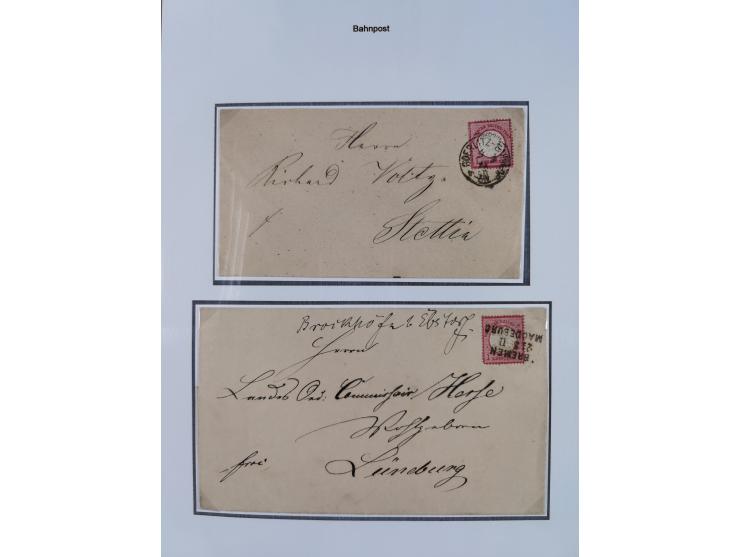 Bahnpost
Herrn
Richard Voltz
Stettin
Brockhöfe b Ebstorf
Herrn
Landes Oec: Commissair
Wohlgeboren
frei
Lüneburg
BREMEN
MAGDEBURG